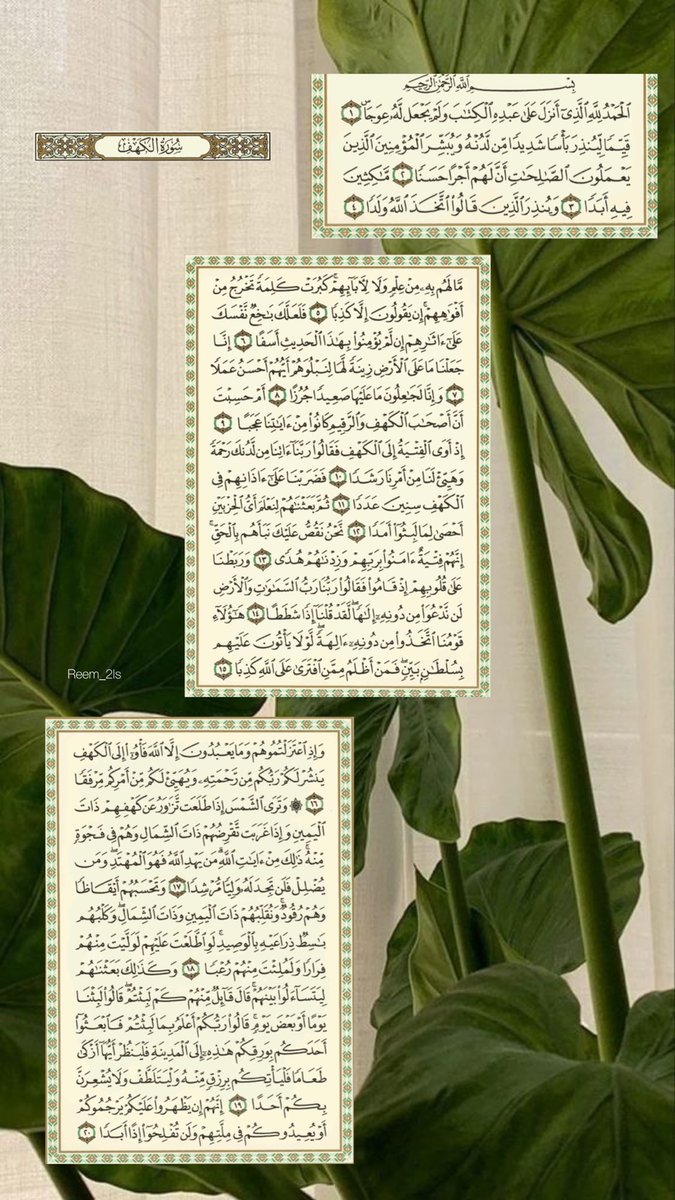 سُورَةُ الكَهْفِ
بِسْمِ اللَّهِ الرَّحْمَٰنِ الرَّحِيمِ
الْحَمْدُ لِلَّهِ الَّذِي أَنزَلَ عَلَىٰ عَبْدِهِ الْكِتَابَ وَلَمْ يَجْعَل لَّهُ عِوَجًا ۜ ١
قَيِّمًا لِّيُنذِرَ بَأْسًا شَدِيدًا مِّن لَّدُنْهُ وَيُبَشِّرَ الْمُؤْمِنِينَ الَّذِينَ
يَعْمَلُونَ الصَّالِحَاتِ أَنَّ لَهُمْ أَجْرًا حَسَنًا ٢ مَّاكِثِينَ
فِيهِ أَبَدًا ٣ وَيُنذِرَ الَّذِينَ قَالُوا اتَّخَذَ اللَّهُ وَلَدًا ٤
مَّا لَهُم بِهِ مِنْ عِلْمٍ وَلَا لِآبَائِهِمْ ۚ كَبُرَتْ كَلِمَةً تَخْرُجُ مِنْ
أَفْوَاهِهِمْ ۚ إِن يَقُولُونَ إِلَّا كَذِبًا ٥ فَلَعَلَّكَ بَاخِعٌ نَّفْسَكَ
عَلَىٰ آثَارِهِمْ إِن لَّمْ يُؤْمِنُوا بِهَٰذَا الْحَدِيثِ أَسَفًا ٦ إِنَّا
جَعَلْنَا مَا عَلَى الْأَرْضِ زِينَةً لَّهَا لِنَبْلُوَهُمْ أَيُّهُمْ أَحْسَنُ عَمَلًا
٧ وَإِنَّا لَجَاعِلُونَ مَا عَلَيْهَا صَعِيدًا جُرُزًا ٨ أَمْ حَسِبْتَ
أَنَّ أَصْحَابَ الْكَهْفِ وَالرَّقِيمِ كَانُوا مِنْ آيَاتِنَا عَجَبًا ٩
إِذْ أَوَى الْفِتْيَةُ إِلَى الْكَهْفِ فَقَالُوا رَبَّنَا آتِنَا مِن لَّدُنكَ رَحْمَةً
وَهَيِّئْ لَنَا مِنْ أَمْرِنَا رَشَدًا ١٠ فَضَرَبْنَا عَلَىٰ آذَانِهِمْ فِي
الْكَهْفِ سِنِينَ عَدَدًا ١١ ثُمَّ بَعَثْنَاهُمْ لِنَعْلَمَ أَيُّ الْحِزْبَيْنِ
أَحْصَىٰ لِمَا لَبِثُوا أَمَدًا ١٢ نَّحْنُ نَقُصُّ عَلَيْكَ نَبَأَهُم بِالْحَقِّ ۚ
إِنَّهُمْ فِتْيَةٌ آمَنُوا بِرَبِّهِمْ وَزِدْنَاهُمْ هُدًى ١٣ وَرَبَطْنَا
عَلَىٰ قُلُوبِهِمْ إِذْ قَامُوا فَقَالُوا رَبُّنَا رَبُّ السَّمَاوَاتِ وَالْأَرْضِ
لَن نَّدْعُوَ مِن دُونِهِ إِلَٰهًا ۖ لَّقَدْ قُلْنَا إِذًا شَطَطًا ١٤ هَٰؤُلَاءِ
قَوْمُنَا اتَّخَذُوا مِن دُونِهِ آلِهَةً ۖ لَّوْلَا يَأْتُونَ عَلَيْهِم
بِسُلْطَانٍ بَيِّنٍ ۖ فَمَنْ أَظْلَمُ مِمَّنِ افْتَرَىٰ عَلَى اللَّهِ كَذِبًا ١٥
Reem_2ls
وَإِذِ اعْتَزَلْتُمُوهُمْ وَمَا يَعْبُدُونَ إِلَّا اللَّهَ فَأْوُوا إِلَى الْكَهْفِ
يَنشُرْ لَكُمْ رَبُّكُم مِّن رَّحْمَتِهِ وَيُهَيِّئْ لَكُم مِّنْ أَمْرِكُم مِّرْفَقًا
١٦ ۞ وَتَرَى الشَّمْسَ إِذَا طَلَعَت تَّزَاوَرُ عَن كَهْفِهِمْ ذَاتَ
الْيَمِينِ وَإِذَا غَرَبَت تَّقْرِضُهُمْ ذَاتَ الشِّمَالِ وَهُمْ فِي فَجْوَةٍ
مِّنْهُ ۚ ذَٰلِكَ مِنْ آيَاتِ اللَّهِ ۗ مَن يَهْدِ اللَّهُ فَهُوَ الْمُهْتَدِ ۖ وَمَن
يُضْلِلْ فَلَن تَجِدَ لَهُ وَلِيًّا مُّرْشِدًا ١٧ وَتَحْسَبُهُمْ أَيْقَاظًا
وَهُمْ رُقُودٌ ۚ وَنُقَلِّبُهُمْ ذَاتَ الْيَمِينِ وَذَاتَ الشِّمَالِ ۖ وَكَلْبُهُم
بَاسِطٌ ذِرَاعَيْهِ بِالْوَصِيدِ ۚ لَوِ اطَّلَعْتَ عَلَيْهِمْ لَوَلَّيْتَ مِنْهُمْ
فِرَارًا وَلَمُلِئْتَ مِنْهُمْ رُعْبًا ١٨ وَكَذَٰلِكَ بَعَثْنَاهُمْ
لِيَتَسَاءَلُوا بَيْنَهُمْ ۚ قَالَ قَائِلٌ مِّنْهُمْ كَمْ لَبِثْتُمْ ۖ قَالُوا لَبِثْنَا
يَوْمًا أَوْ بَعْضَ يَوْمٍ ۚ قَالُوا رَبُّكُمْ أَعْلَمُ بِمَا لَبِثْتُمْ فَابْعَثُوا
أَحَدَكُم بِوَرِقِكُمْ هَٰذِهِ إِلَى الْمَدِينَةِ فَلْيَنظُرْ أَيُّهَا أَزْكَىٰ
طَعَامًا فَلْيَأْتِكُم بِرِزْقٍ مِّنْهُ وَلْيَتَلَطَّفْ وَلَا يُشْعِرَنَّ
بِكُمْ أَحَدًا ١٩ إِنَّهُمْ إِن يَظْهَرُوا عَلَيْكُمْ يَرْجُمُوكُمْ
أَوْ يُعِيدُوكُمْ فِي مِلَّتِهِمْ وَلَن تُفْلِحُوا إِذًا أَبَدًا ٢٠